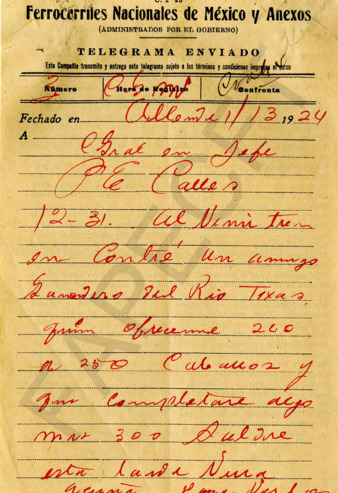 Ferrocarriles Nacionales de México y Anexos
(ADMINISTRADOS POR EL GOBIERNO)
TELEGRAMA ENVIADO
Esta Compañía transmite y entrega este telegrama sujeto a los términos y condiciones impresos al dorso
Número Hora de Registro Confronta
3
Fechado en Allende 1/13 1924
A
Gral en Jefe
P E Calles
12-31. Al Venir tren
en Contré un amigo
Ganadero del Rio Texas
quien ofreceme 200
a 250 Caballos y
que completare algo
mas 300 Saldre
esta tarde